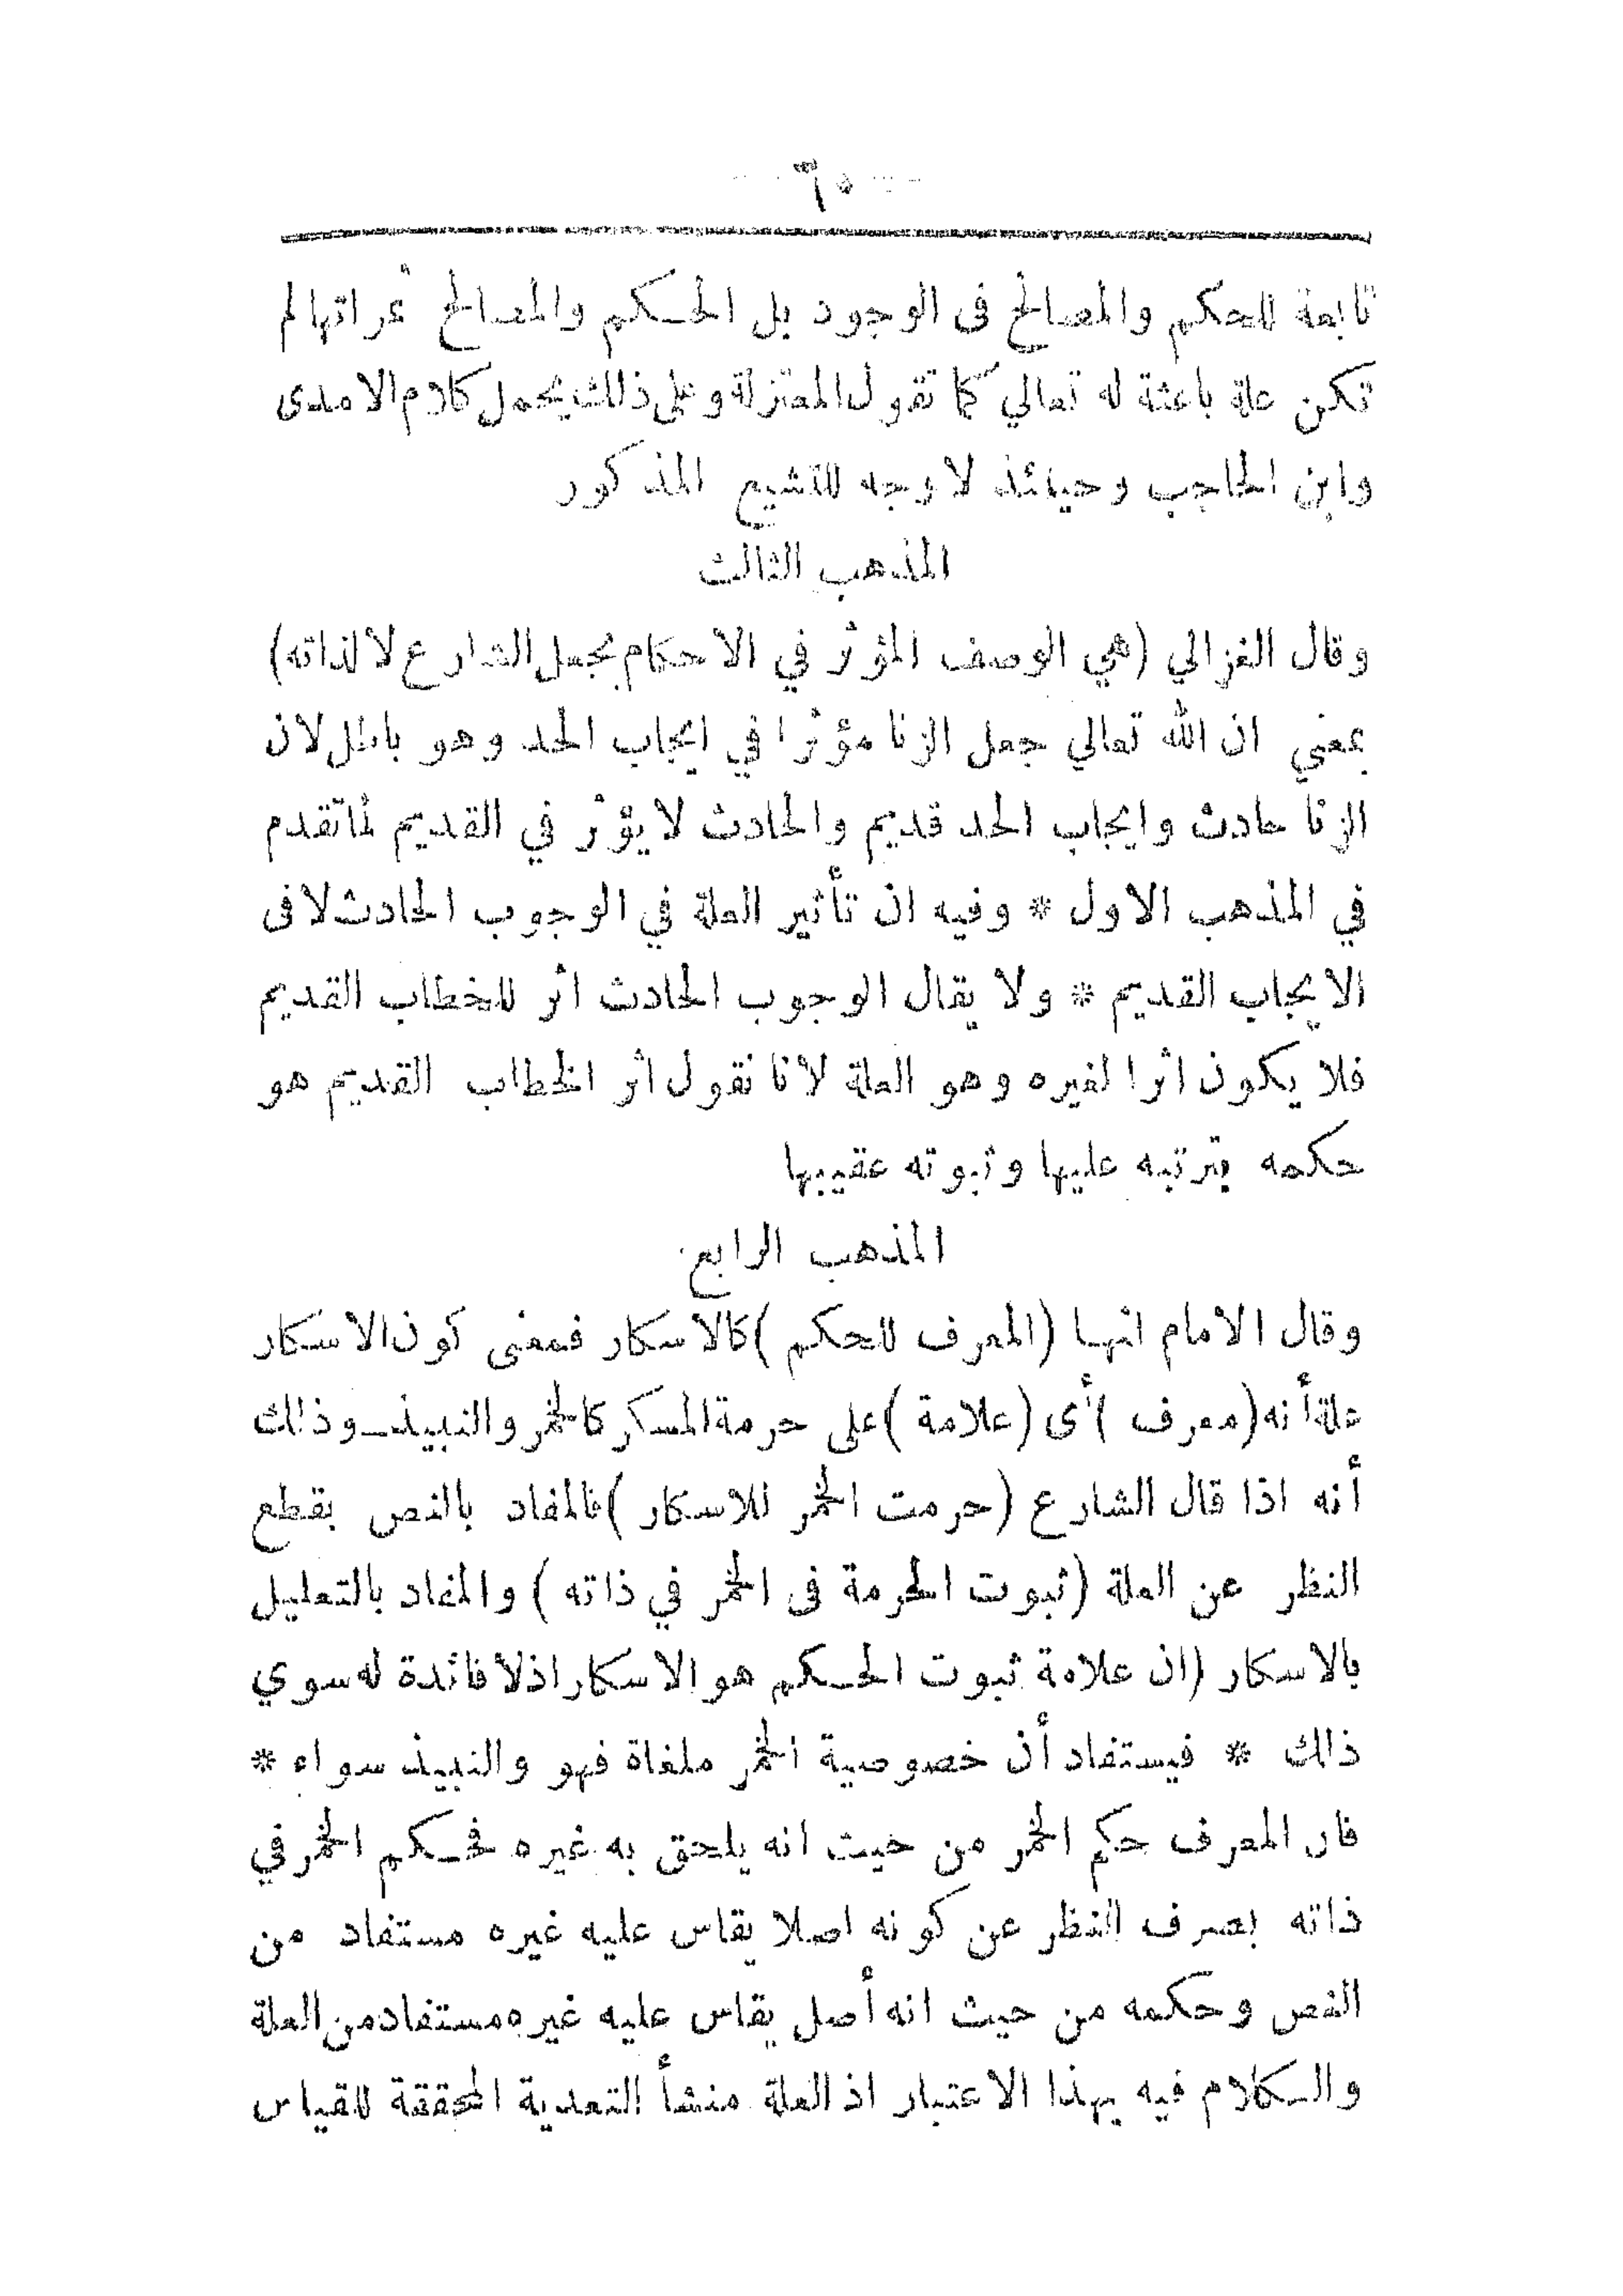 ٦٥
تابعة للحكم والمصالح فى الوجود بل الحكم والمصالح ثمراتها لم
تكن علة باعثة له تعالي كما تقول المعتزلة وعلى ذلك يحمل كلام الامدى
وابن الحاجب وحينئذ لا وجه للتشيع المذكور
المذهب الثالث
وقال الغزالي (هي الوصف المؤثر في الاحكام بجعل الشارع لا لذاته)
بمعني ان الله تعالي جعل الزنا مؤثرا في ايجاب الحد وهو باطل لان
الزنا حادث وايجاب الحد قديم والحادث لا يؤثر في القديم لما تقدم
في المذهب الاول * وفيه ان تأثير العلة في الوجوب الحادث لا فى
الايجاب القديم * ولا يقال الوجوب الحادث اثر للخطاب القديم
فلا يكون اثرا لغيره وهو العلة لانا نقول اثر الخطاب القديم هو
حكمه بترتبه عليها وثبوته عقيبها
المذهب الرابع
وقال الامام انها (المعرف للحكم) كالاسكار فمعنى كون الاسكار
علة أنه (معرف) أى (علامة) على حرمة المسكر كالخمر والنبيذ وذلك
أنه اذا قال الشارع (حرمت الخمر للاسكار) فالمفاد بالنص بقطع
النظر عن العلة (ثبوت الحرمة فى الخمر في ذاته) والمفاد بالتعليل
بالاسكار (ان علامة ثبوت الحكم هو الاسكار اذ لا فائدة له سوي
ذلك * فيستفاد أن خصوصية الخمر ملغاة فهو والنبيذ سواء *
فان المعرف حكم الخمر من حيت انه يلحق به غيره فحكم الخمر في
ذاته بصرف النظر عن كونه اصلا يقاس عليه غيره مستفاد من
النص وحكمه من حيث انه أصل يقاس عليه غيره مستفاد من العلة
والكلام فيه بهذا الاعتبار اذ العلة منشأ التعدية المحققة للقياس